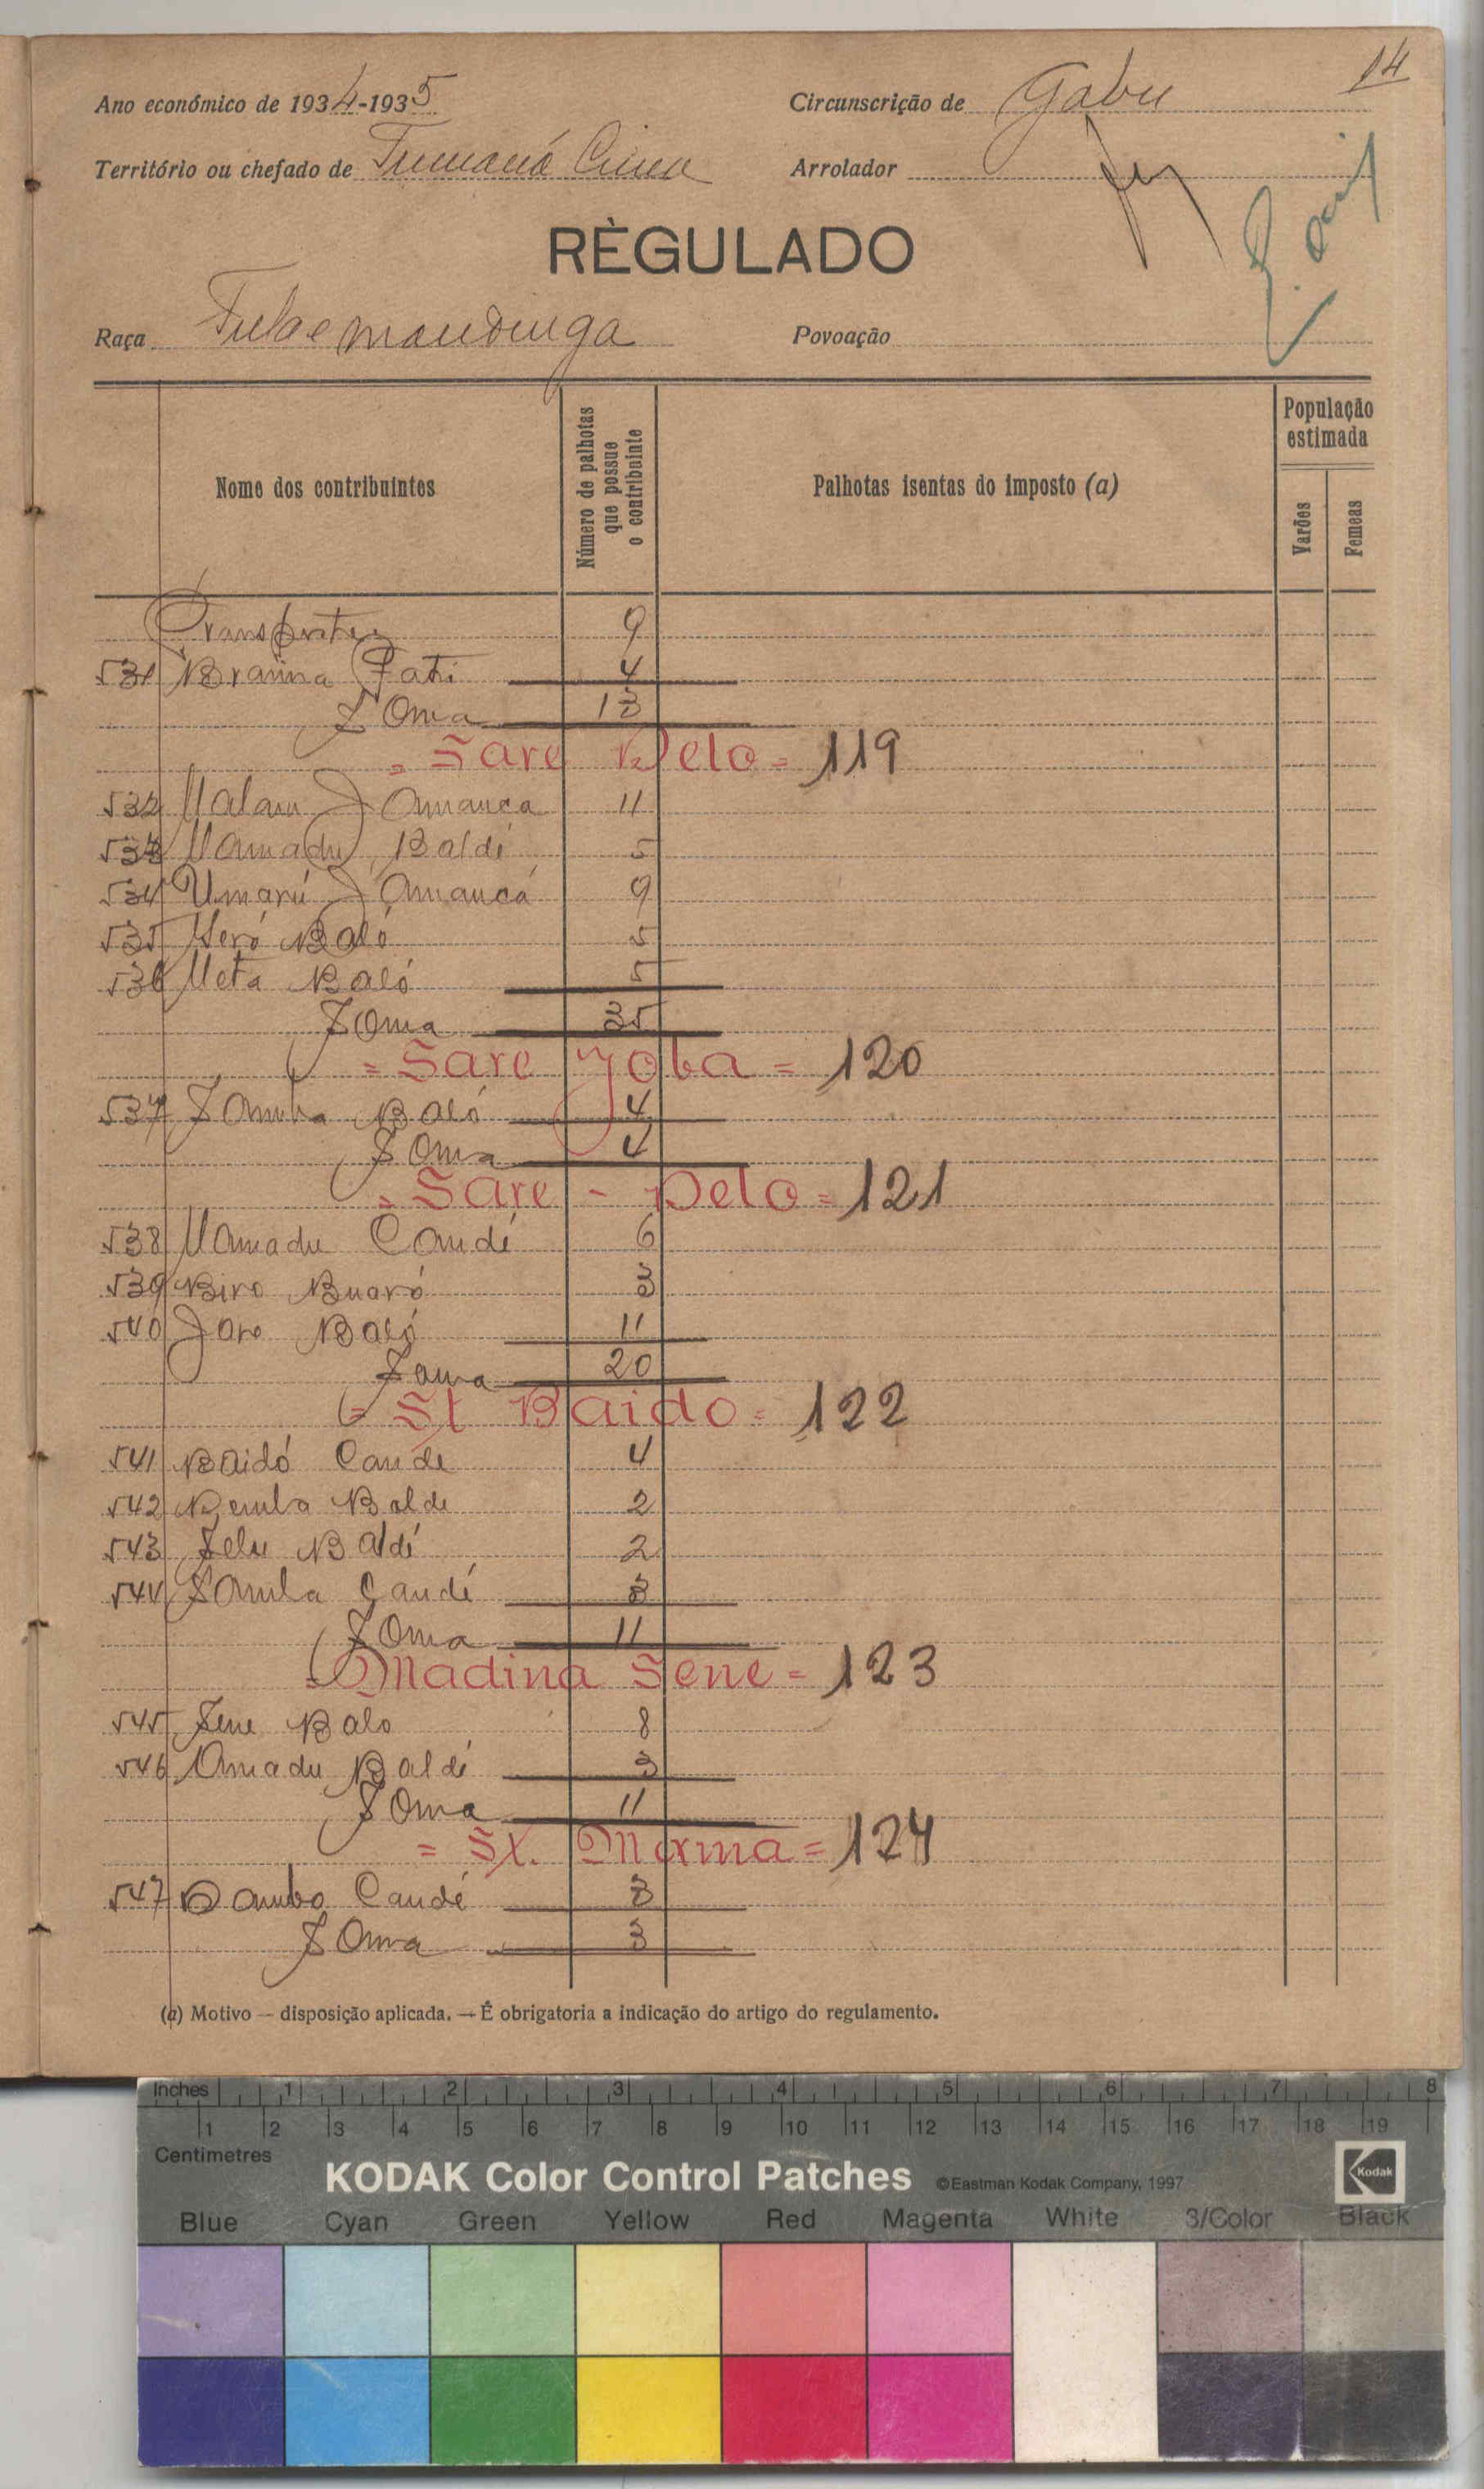 14
Ano económico de 1934-1935 Circunscrição de Gabu
Território ou chefado de Tumaná Cima Arrolador
RÈGULADO
Raça Fula e mandinga Povoação
Nome dos contribuintes
Número de palhotas que possue o contribuinte
Palhotas isentas do imposto (a)
População estimada
Varões
Femeas
Transporte 9
531 Braima Fati 4
Soma 13
= Sare Delo = 119
532 Malam Jamanca 11
533 Mamadu Baldé 5
534 Umarú Jamancá 9
535 Ieró Baló 5
536 Meta Baló 5
Soma 35
= Sare Joba = 120
537 Samba Baló 4
Soma 4
= Sare - Delo = 121
538 Mamadu Candé 6
539 Biro Buaró 3
540 Jaro Baló 11
Soma 20
= St Baido = 122
541 Baidó Cande 4
542 Demba Balde 2
543 Selu Baldé 2
544 Samba Candé 3
Soma 11
= Madina Sene = 123
545 Sene Balo 8
546 Amadu Baldé 3
Soma 11
= St. Mama = 124
547 Dambo Candé 3
Soma 3
(a) Motivo — disposição aplicada. — É obrigatoria a indicação do artigo do regulamento.
Inches 1 2 3 4 5 6 7 8
1 2 3 4 5 6 7 8 9 10 11 12 13 14 15 16 17 18 19
Centimetres
KODAK Color Control Patches ©Eastman Kodak Company, 1997 Kodak
Blue Cyan Green Yellow Red Magenta White 3/Color Black